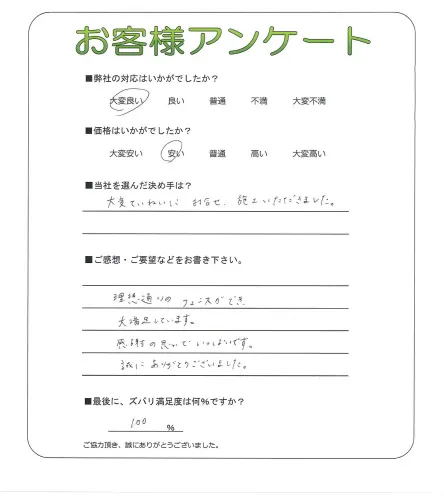 お客様アンケート
■弊社の対応はいかがでしたか？
大変良い 良い 普通 不満 大変不満
■価格はいかがでしたか？
大変安い 安い 普通 高い 大変高い
■当社を選んだ決め手は？
大変ていねいに 打合せ、施工いただきました。
■ご感想・ご要望などをお書き下さい。
理想通りの フェンスができ
大満足しています。
感謝の思いでいっぱいです。
誠にありがとうございました。
■最後に、ズバリ満足度は何％ですか？
100 ％
ご協力頂き、誠にありがとうございました。